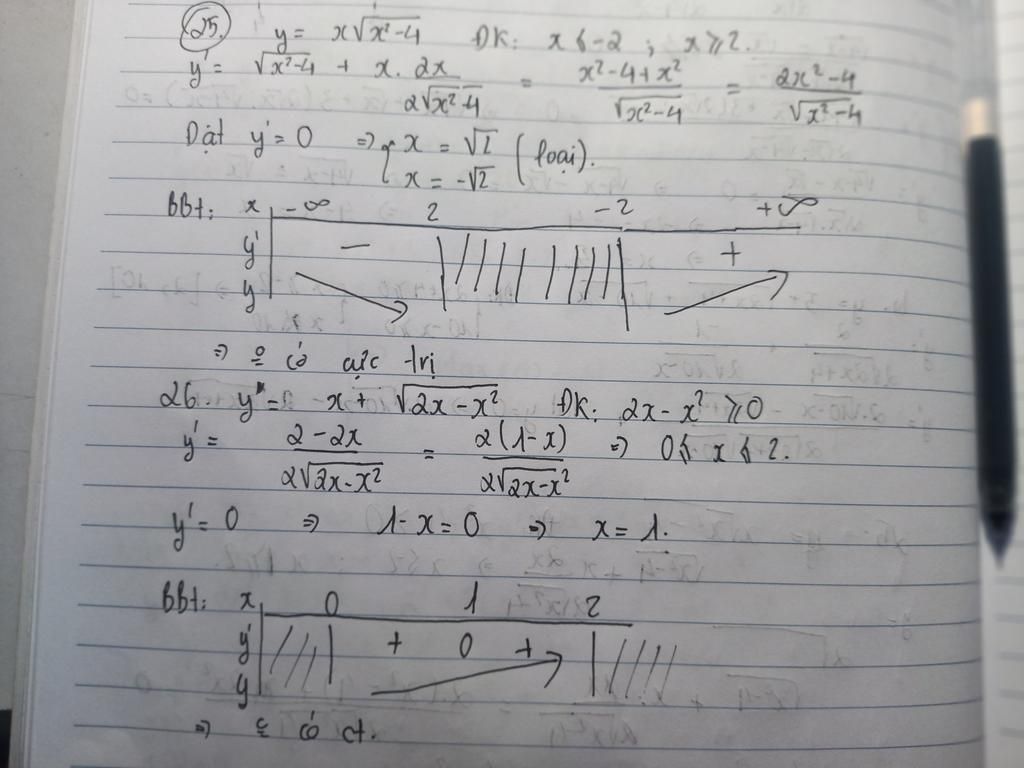 25. y = x√(x²-4) ĐK: x ≤ -2 ; x ≥ 2.
y' = √(x²-4) + x. 2x / 2√(x²-4) = (x²-4+x²) / √(x²-4) = (2x²-4) / √(x²-4)
Đặt y' = 0 ⇒ { x = √2 (loại).
x = -√2
BBt: x -∞ 2 -2 +∞
y' - +
y
⇒ o có cực trị
26. y = x + √(2x-x²) ĐK: 2x-x² ≥ 0
y' = (2-2x) / 2√(2x-x²) = 2(1-x) / 2√(2x-x²) ⇒ 0 ≤ x ≤ 2.
y' = 0 ⇒ 1-x = 0 ⇒ x = 1.
BBt: x 0 1 2
y' + 0 +
y
⇒ có ct.